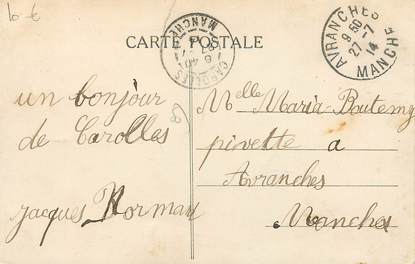 10 €
CARTE POSTALE
CAROLLES
MANCHE
6 40
AVRANCHES
9 50
27-7
14
MANCHE
un bonjour
de Carolles
Jacques Normand
Melle Maria Boutemy
pivette a
Avranches
Manche